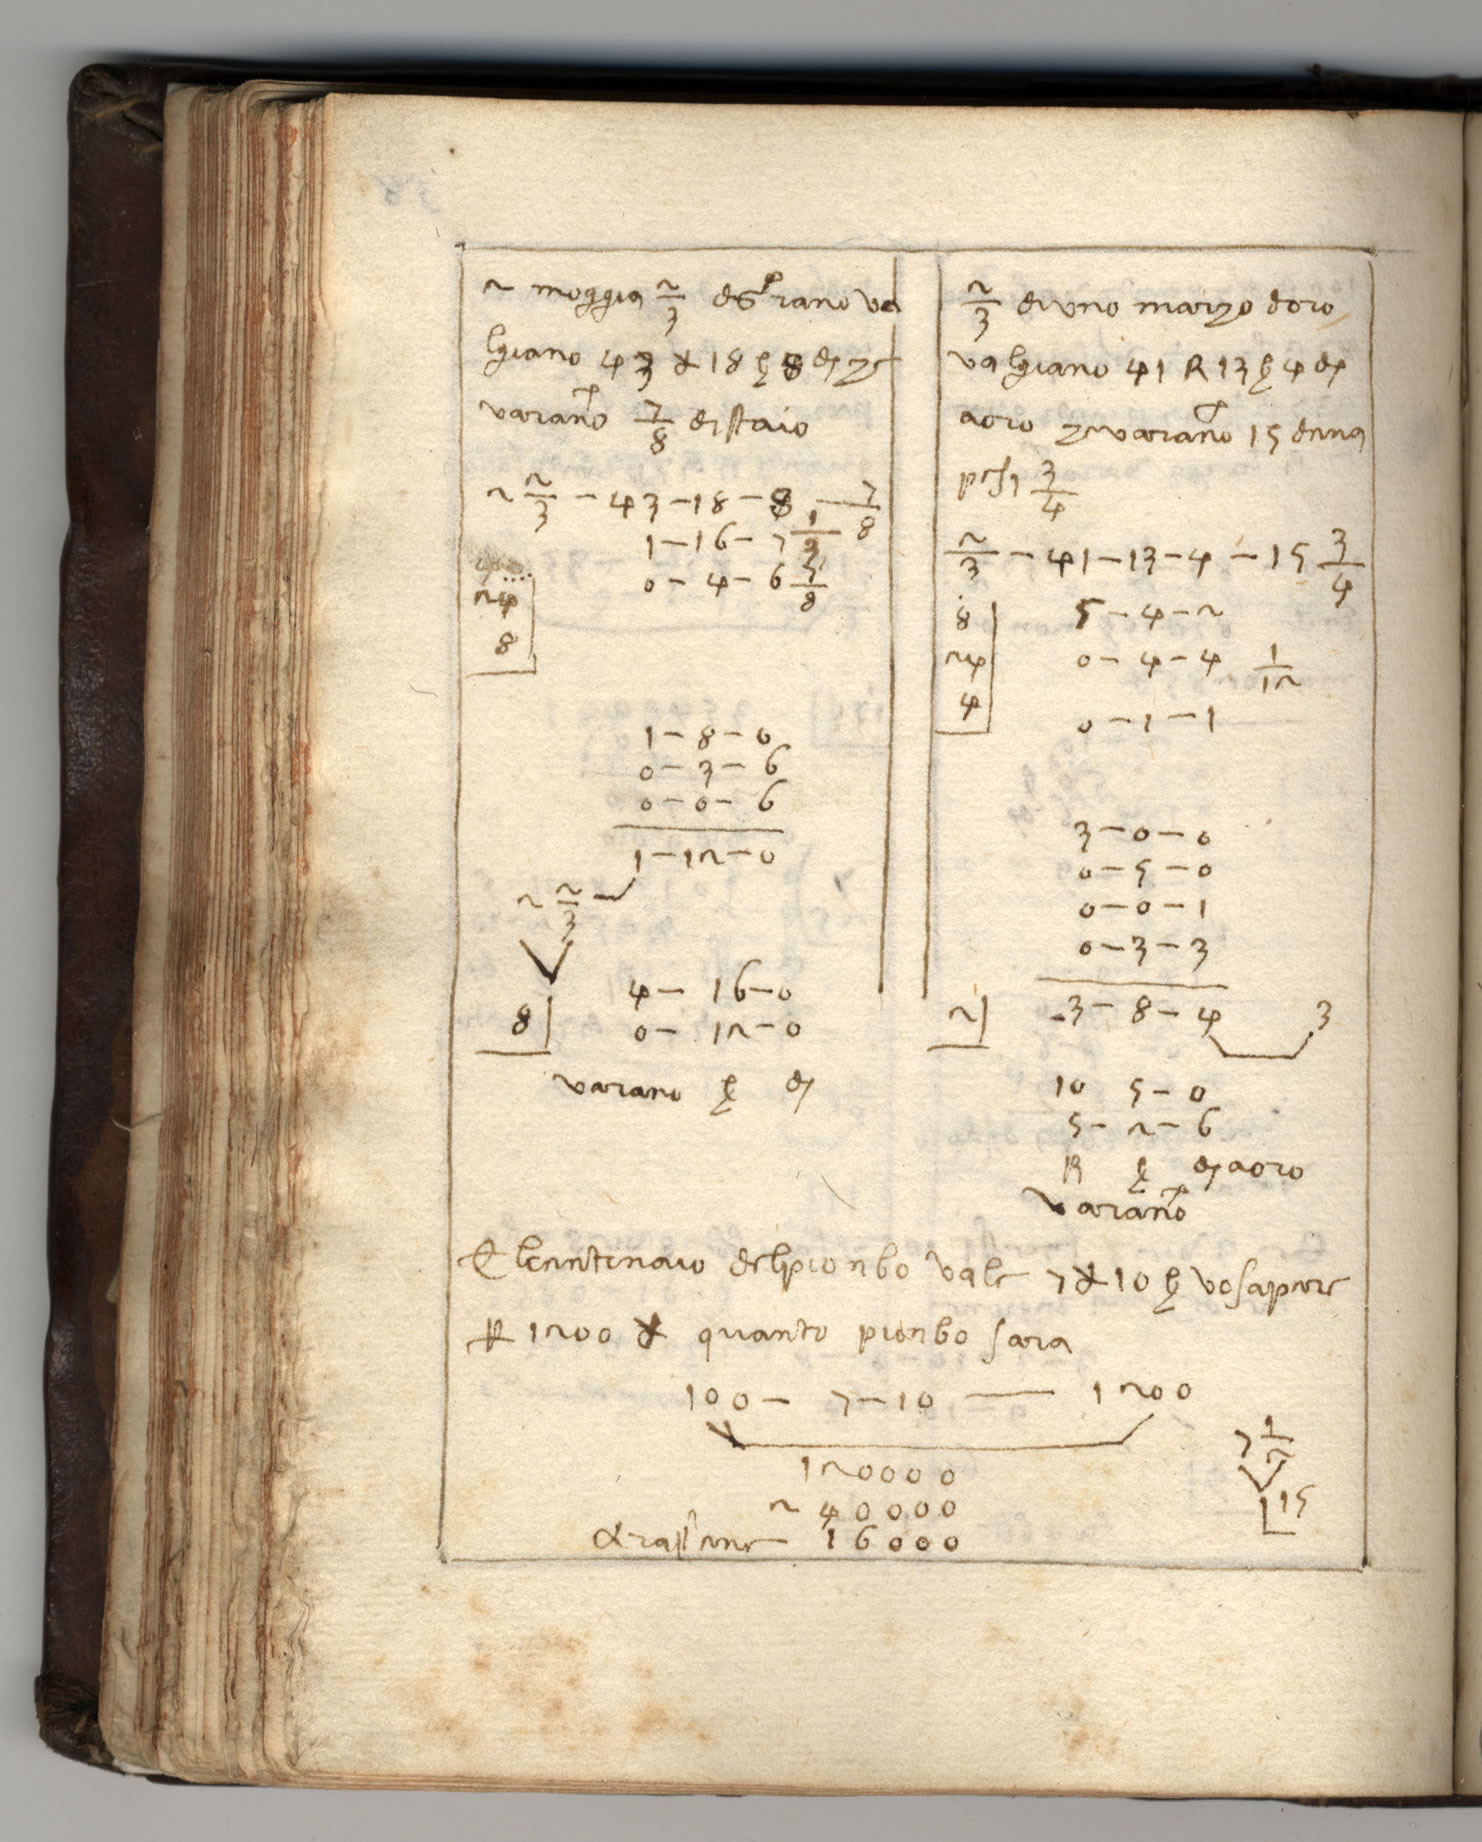 2 moggia 2/3 di Grano va
lgiano 43 ₰ 18 ß 8 d che
varano 7/8 di staio
2 2/3 – 43 – 18 – 8 — 7/8
1 – 16 – 7 1/3
0 – 4 – 6 7/8
24
8
1 – 8 – 0
0 – 3 – 6
0 – 0 – 6
1 – 12 – 0
2 2/3
4 – 16 – 0
8 0 – 12 – 0
varano ß d
2/3 di uno marzo doro
valgiano 41 R 13 ß 4 d
aoro varano 15 dena
pesi 3/4
2/3 – 41 – 13 – 4 – 15 3/4
8 5 – 4 – 2
24 0 – 4 – 4 1/12
4 0 – 1 – 1
3 – 0 – 0
0 – 5 – 0
0 – 0 – 1
0 – 3 – 3
2 3 – 8 – 4 3
10 5 – 0
5 – 2 – 6
R ß d aoro
varano
El centinaio del pionbo vale 7 ₰ 10 ß vo sapere
R 1200 ₰ quanto pionbo sara
100 – 7 – 10 — 1200
7 1/2
120000
15
240000
16000